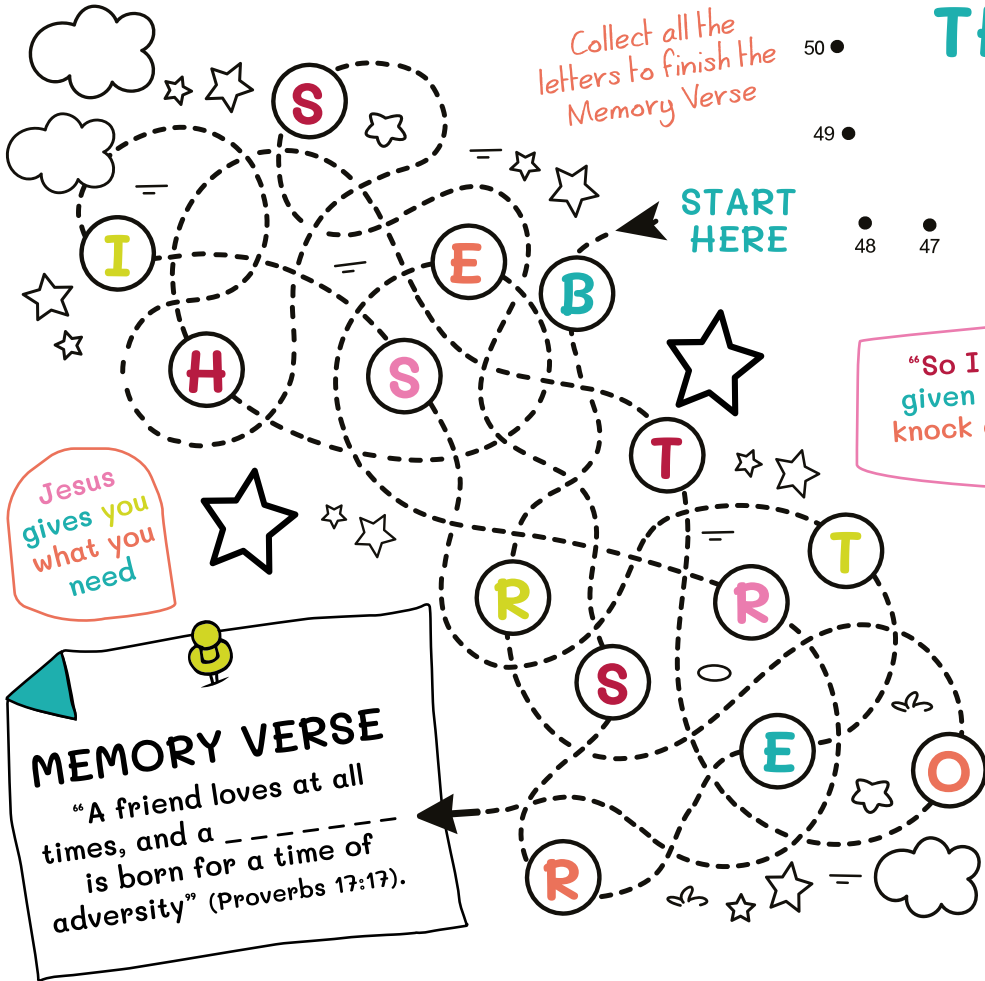 Collect all the
letters to finish the
Memory Verse
50
49
48
47
START
HERE
S
I
E
B
H
S
T
T
R
R
S
E
O
R
“So I
given
knock
Jesus
gives you
what you
need
MEMORY VERSE
“A friend loves at all
times, and a _ _ _ _ _ _ _
is born for a time of
adversity” (Proverbs 17:17).